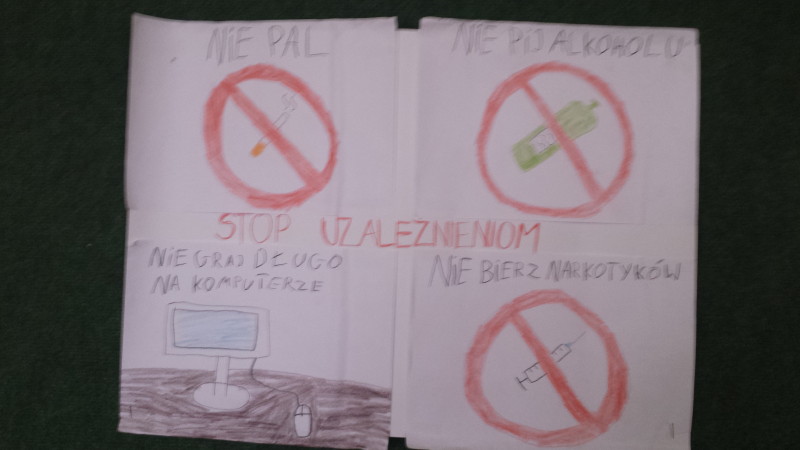 NIE PAL
NIE PIJ ALKOHOLU
STOP UZALEŻNIENIOM
NIE GRAJ DŁUGO
NA KOMPUTERZE
NIE BIERZ NARKOTYKÓW